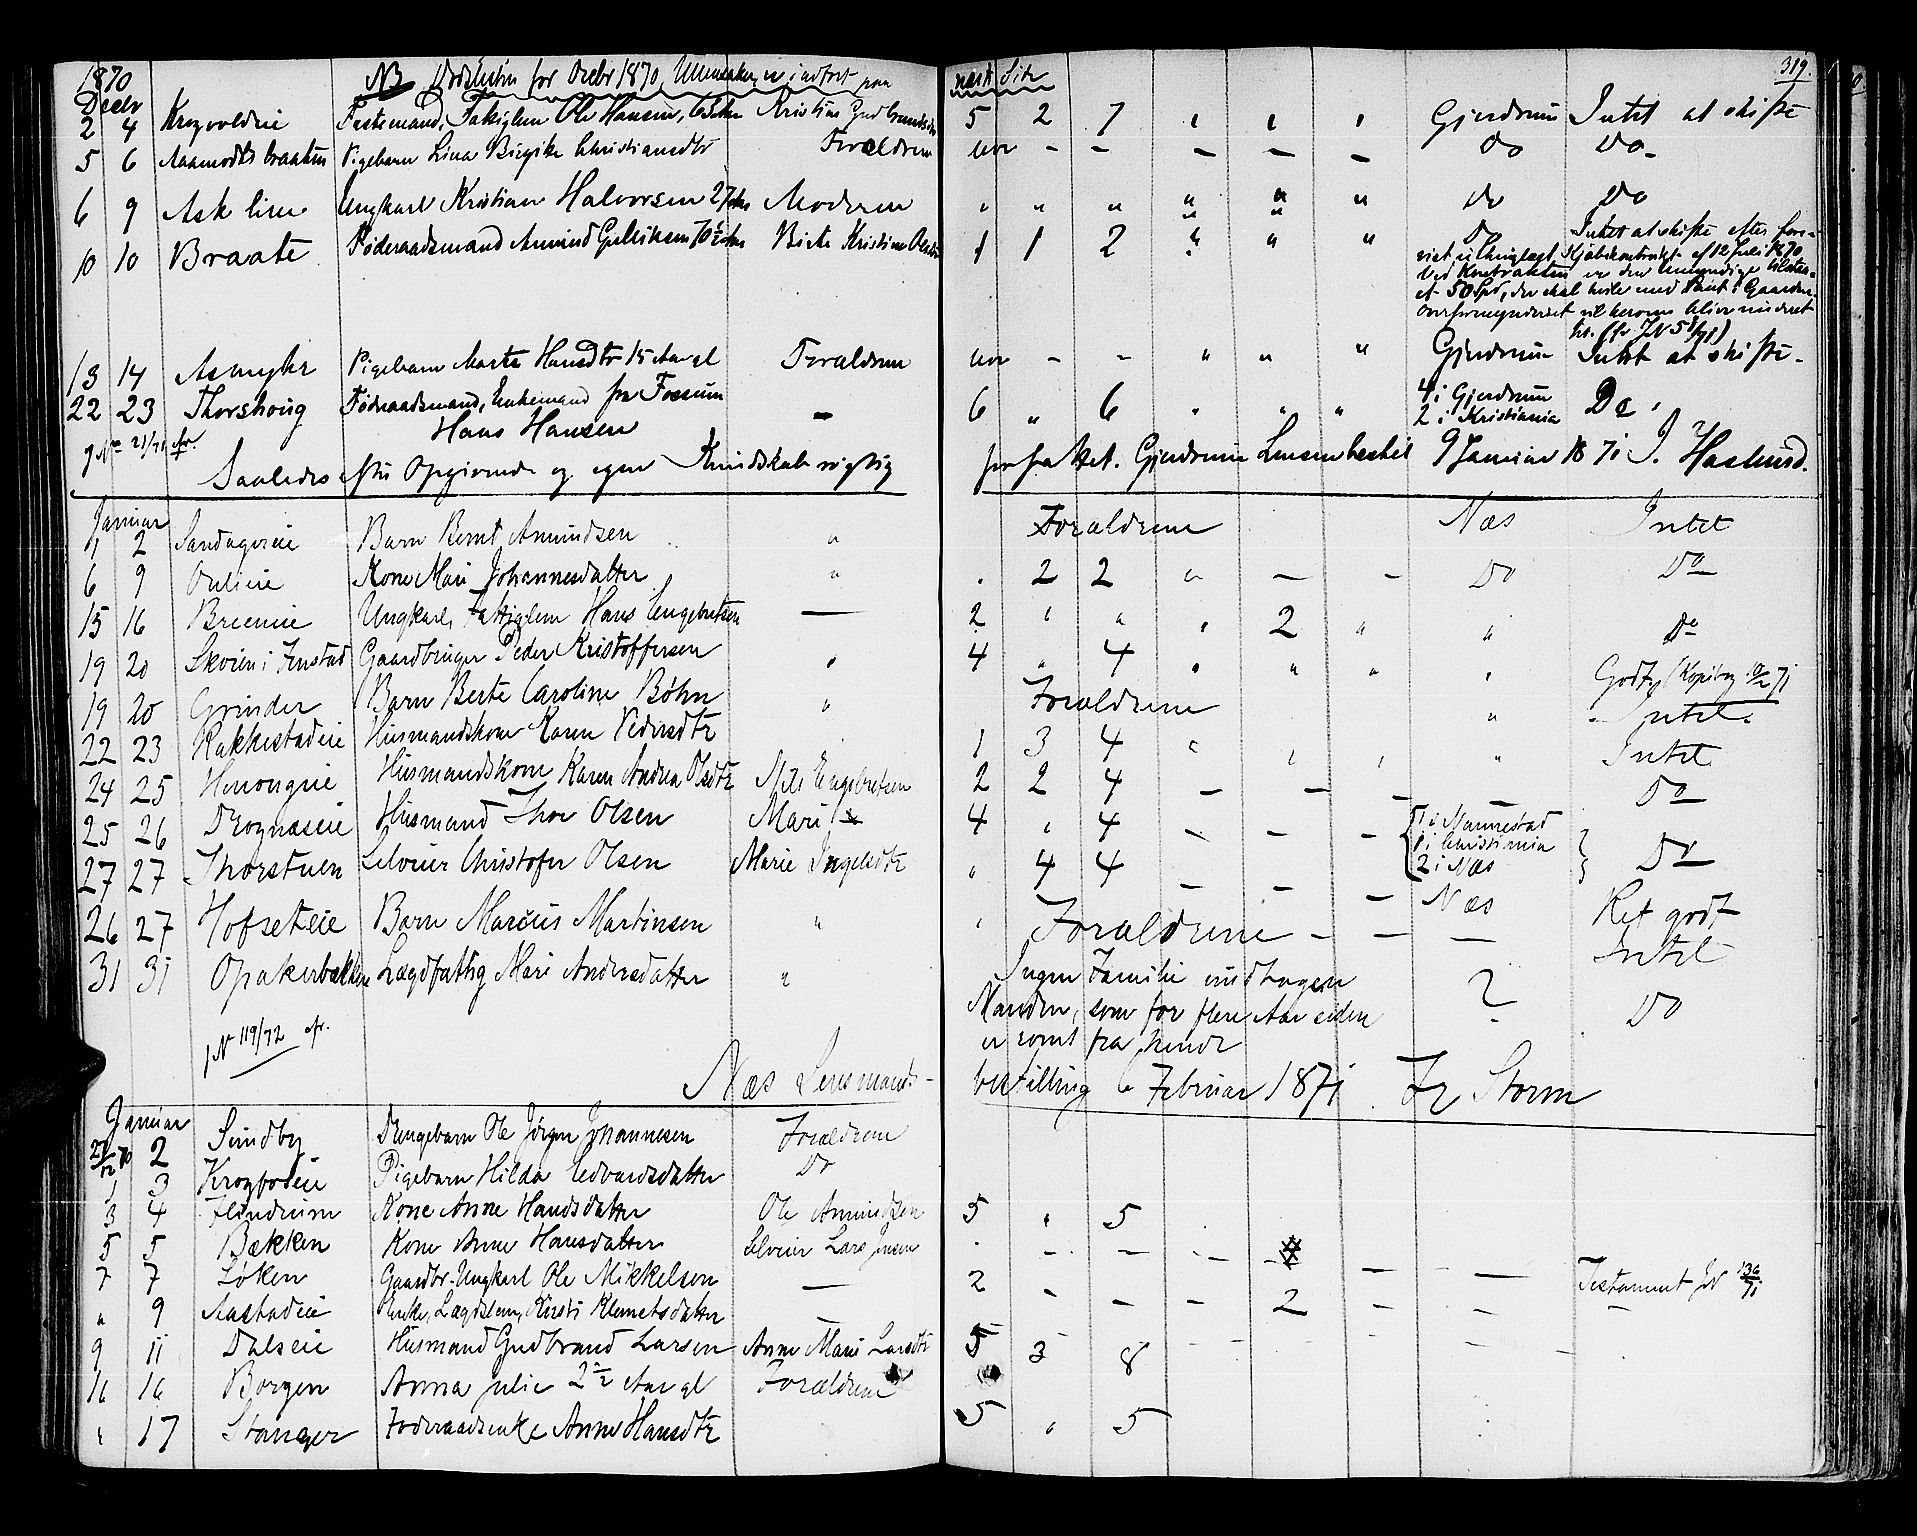 319.
1870 NB Dødslisten for Decbr 1870, Ullensaker, er indført paa næste Side
Decbr
2 4 Krogvoldeie Festemand, Fattiglem Ole Hansen, Kristine Gudbrandsd 5 2 7 Gjerdrum Intet at skifte
5 6 Aamodtsbraaten Pigebarn Lina Birgitte Christiansdtr Forældrene - - - - - Do Do -
6 9 Ask Ungkarl Kristian Halvorsen 27 Aar Moderen " " " " " " Do Do
10 10 Braate Føderaadsmand Amund Gulliksen 70½ Aar Birte Kristine Olsdtr 1 1 2 " " " Do Intet at skifte efter fore-
vist thinglæst Kjøbekontrakt af 12 Juli 1870
Ved Kontrakten er den Umyndige
50 Spd, der skal med Pant i Gaarden
Overformynderiet vil herom blive underret
13 14 Asmyhr Pigebarn Marte Hansdtr 15 Aar gl Forældrene - - " " " Gjerdrum Intet at skifte -
22 23 Thorshoug Føderaadsmand, Enkemand fra Fossum - 6 " 6 " " " 4 i Gjerdrum Do
Hans Hansen 2 i Kristiania
JN 21/71 fr.
Saaledes efter Opgivende og egen Kundskab rigtig forfattet. Gjerdrum Lensm bestil 9 Januar 1871 J. Haslund.
Januar
1 2 Sandagereie Barn Bernt Amundsen " Forældrene Næs Intet
6 9 Kone Mari Johannesdatter " . 2 2 " - - Do Do
15 16 Breeneie Ungkarl, Fattiglem Hans Engebretsen - 2 " " " 2 " " Do
19 20 Skoien i Henstad Gaardbruger Peder Kristoffersen " 4 " 4 " " " " Godt, (Kopibog 71
19 20 Grinder Barn Berte Caroline Bøhn " Forældrene " Intet
22 23 Rakkestadeie Husmandskone Karen Pedersdtr 1 3 4 " " " " Intet
24 25 Husmandskone Karen Andrea Olsdtr Nils Engebretsen 2 2 4 - - - - Do
25 26 Drognæseie Husmand Thor Olsen Mari 4 " 4 - - - 1 i Nannestad
1 i Christiania
2 i Næs Do
27 27 Thorstuen Selveier Christofer Olsen Marie Ingelsdtr " 4 4 - - - Næs Ret godt
26 27 Hofseteie Barn Marius Martinsen " " Forældrene - - - Intet
31 31 Opakerbakken Lægdfattig Mari Andersdatter " Ingen Familie undtagen
Manden, som for flere Aar siden
er rømt fra hende ? Do
JN 119/72 fr.
Næs Lensmands-bestilling 6 Februar 1871 Fr Storm
Januar
27/12 70 2 Sundby Drengebarn Ole Jørgen Johannesen Forældrene
1 3 Krogfoseie Pigebarn Hilda Edvardsdatter Do
3 4 Kone Anne Hansdatter Ole Amundsen 5 " 5
5 5 Bækken Kone Anne Hansdatter Selveier Lars Jensen . - - - - - -
7 7 Løken Gaardbr. Ungkarl Ole Mikkelsen - 2 Testament JN 130/71
" 9 Aastadeie Enke, Lægdslem, Kirsti Klemetsdatter - - - - 2 - - -
9 11 Dalseie Husmand Gudbrand Larsen Anne Marie Larsdtr 5 3 8
16 16 Borgen Anna Julie 2½ Aar gl Forældrene
" 17 Stanger Føderaadsenke Anne Hansdtr 5 " 5